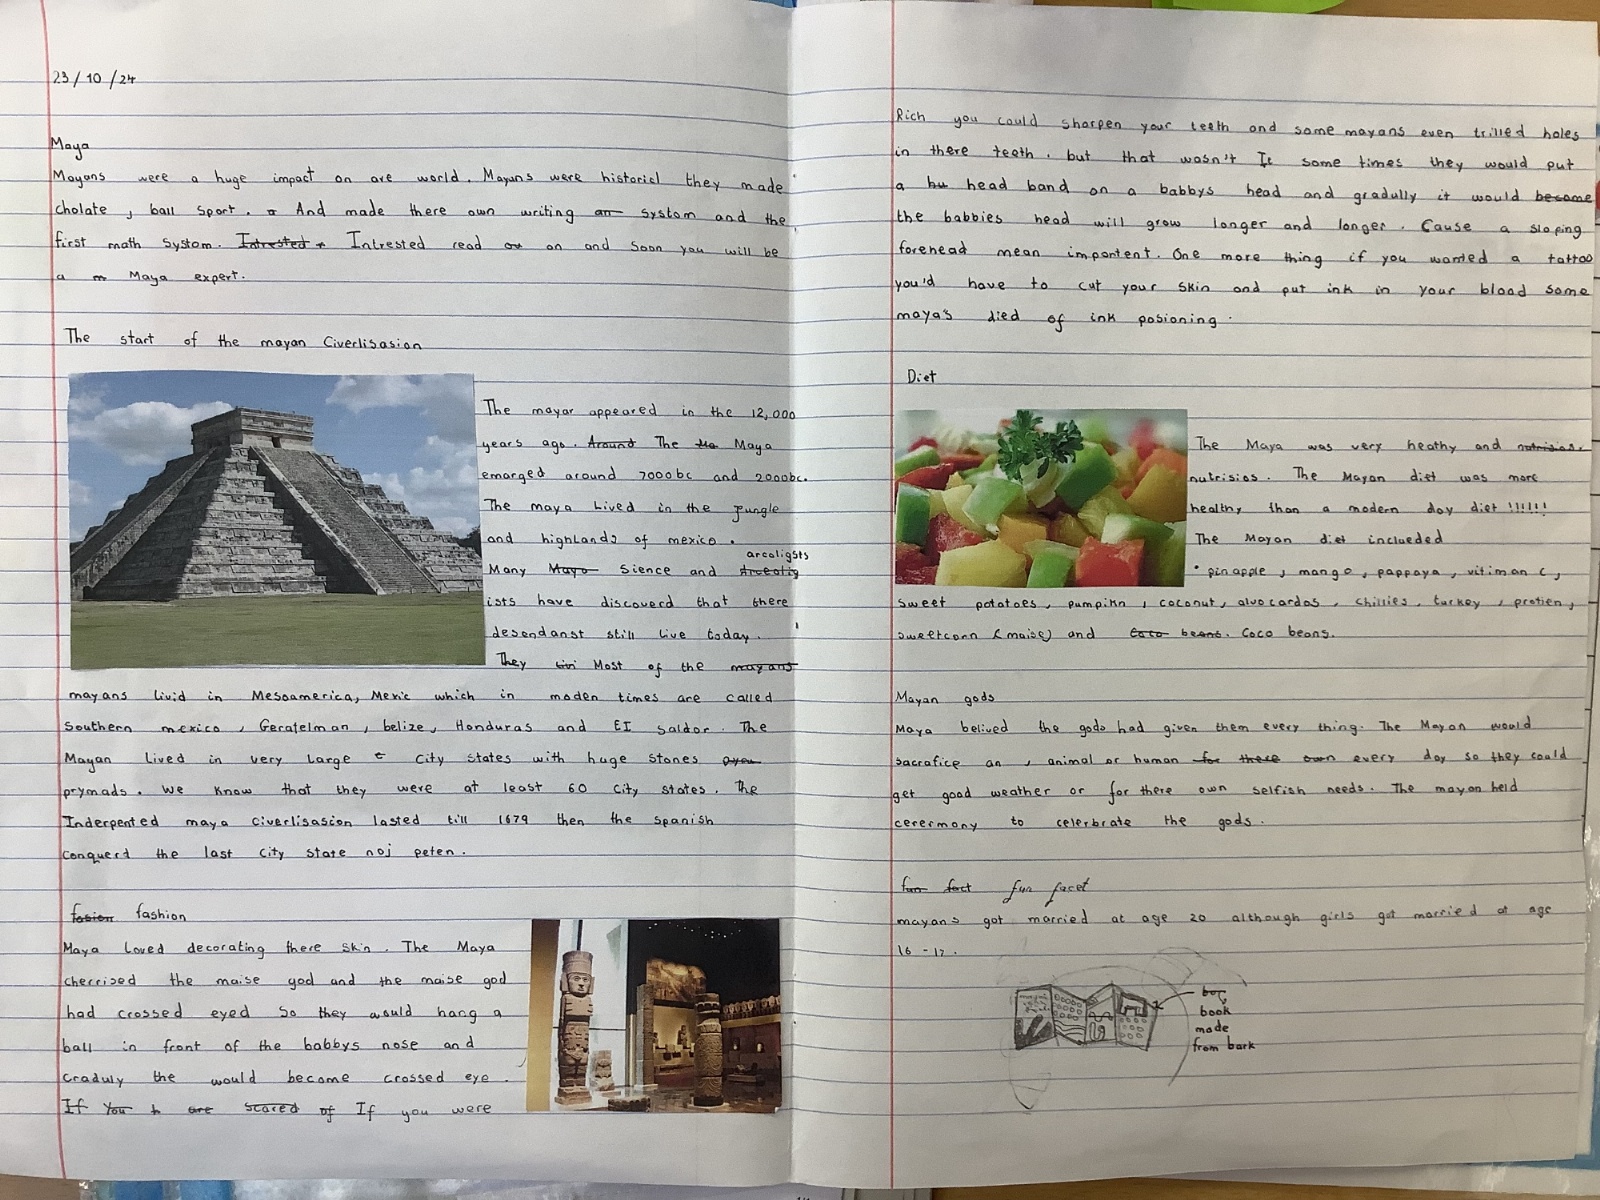 23/10/24
Maya
Mayans were a huge impact on are world. Mayans were historicl they made
cholate, ball sport. And made there own writing an system and the
first math system. Intrested Intrested read on on and soon you will be
a m Maya expert.
The start of the mayan Civerlisasion
The mayar appeared in the 12,000
years ago. Around The Ma Maya
emarged around 7000bc and 2000bc.
The maya Lived in the jungle
and highlands of mexico.
arcoligsts
Many Maya Sience and Arceolig
ists have discoverd that there
desendanst still live today.
They livi Most of the mayans
mayans livid in Mesoamerica, Mexic which in moden times are called
Southern mexico, Geratelman, belize, Honduras and EI saldor. The
Mayan Lived in very Large c City states with huge stones pyou
prymads. We know that they were at least 60 City states. The
Inderpented maya civerlisasion lasted till 1679 then the spanish
conquerd the last City state noj peten.
fasion fashion
Maya Loved decorating there skin. The Maya
cherrised the maise god and the maise god
had crossed eyed So they would hang a
ball in front of the babbys nose and
Craduly the would become crossed eye.
If You h are scared of If you were
Rich you could sharpen your teeth and some mayans even trilled holes
in there teeth. but that wasn't It some times they would put
a bu head band on a babbys head and gradully it would become
the babbies head will grow longer and longer. Cause a sloping
forehead mean importent. One more thing if you wanted a tattoo
you'd have to cut your skin and put ink in your blood some
maya's died of ink posioning.
Diet
The Maya was very heathy and nutrisios.
nutrisios. The Mayan diet was more
healthy than a modern day diet !!!!!!
The Mayan diet inclueded
• pinapple, mango, pappaya, vitiman c,
sweet potatoes, pumpikn, coconut, alvocardos, chillies, turkey, protien,
sweetcorn (maise) and Coco beans. Coco beans.
Mayan gods
Maya belived the gods had given them every thing. The Mayan would
sacrafice an, animal or human for there own every day so they could
get good weather or for there own selfish needs. The mayan held
cerermony to celerbrate the gods.
fun fact fun facet
mayans got married at age 20 although girls got married at age
16-17.
boy
book
made
from bark